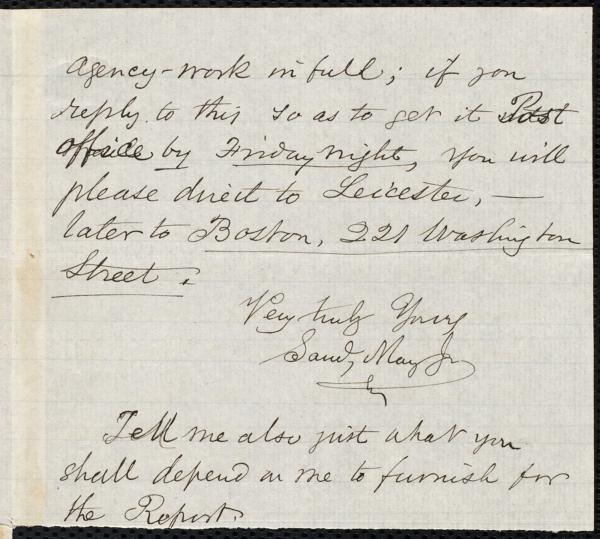 agency-work in full; if you
reply to this so as to get it Post
office by Friday night, you will
please direct to Leicester, —
later to Boston, 221 Washington
Street.
Very truly Yours
Saml. May Jr.
Tell me also just what you
shall depend on me to furnish for
the Report.